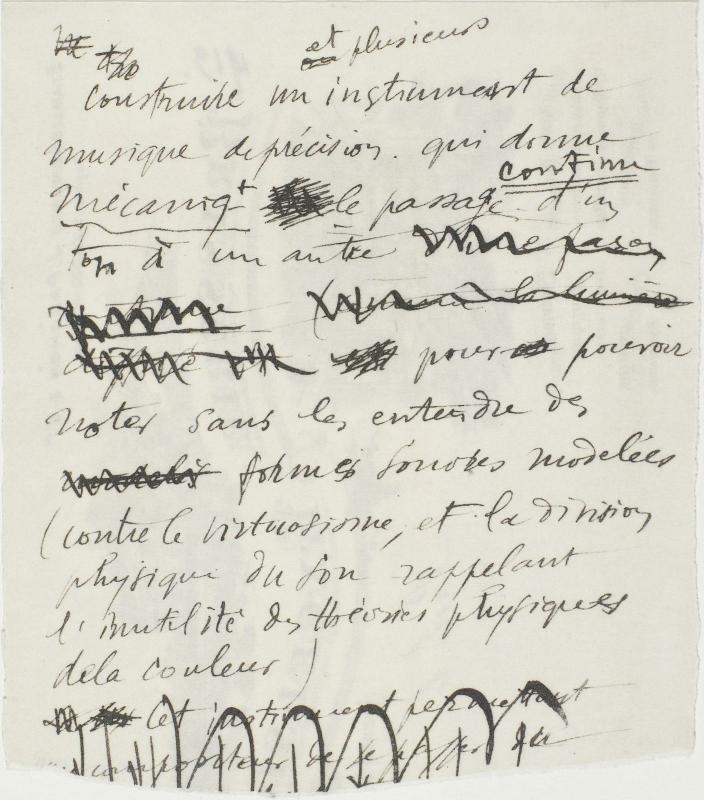 et plusieurs
Construire un instrument de
musique de précision. qui donne
continu
mécaniqt le passage d'un
ton à un autre d'une façon
(comme la lumière
pour pouvoir
noter sans les entendre des
formes sonores modelées
(contre le virtuosisme, et la division
physique du son rappelant
l'inutilité des théories physiques
de la couleur)
Cet instrument permettant
compositeur de se passer du